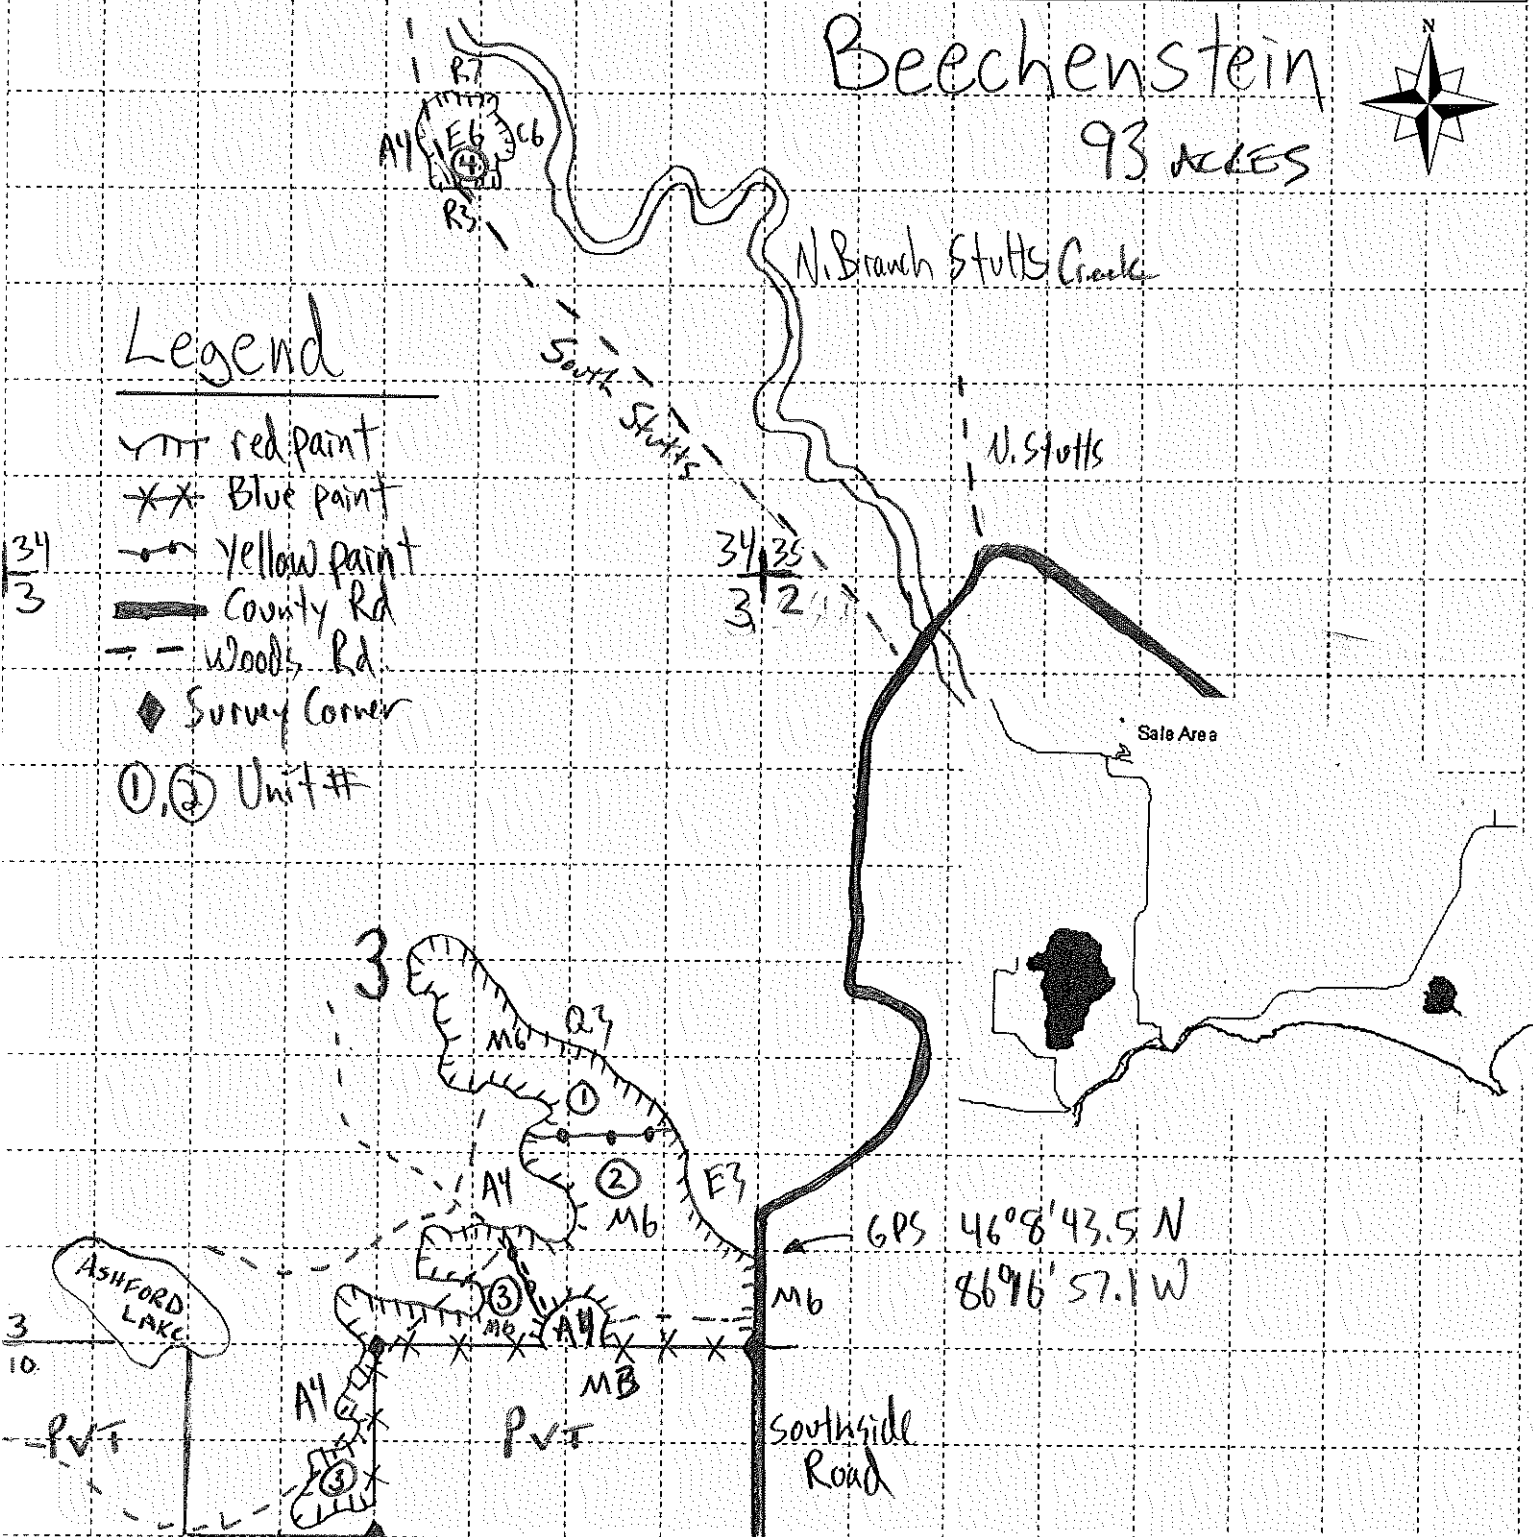 Beechenstein
93 ACRES
N
R7
A4 E6 C6
4
R3
N. Branch Stutts Creek
South Stutts
N. Stutts
Legend
red paint
Blue paint
Yellow paint
County Rd
Woods Rd.
Survey Corner
1, 2 Unit #
34
3
34 35
3 2
Sale Area
3
M6
Q3
1
2
M6
A4
E3
GPS 46°8'43.5 N
86°16'57.1 W
M6
ASHFORD
LAKE
3
10
3
M6
A4
A4
PVT
PVT
3
Southside
Road